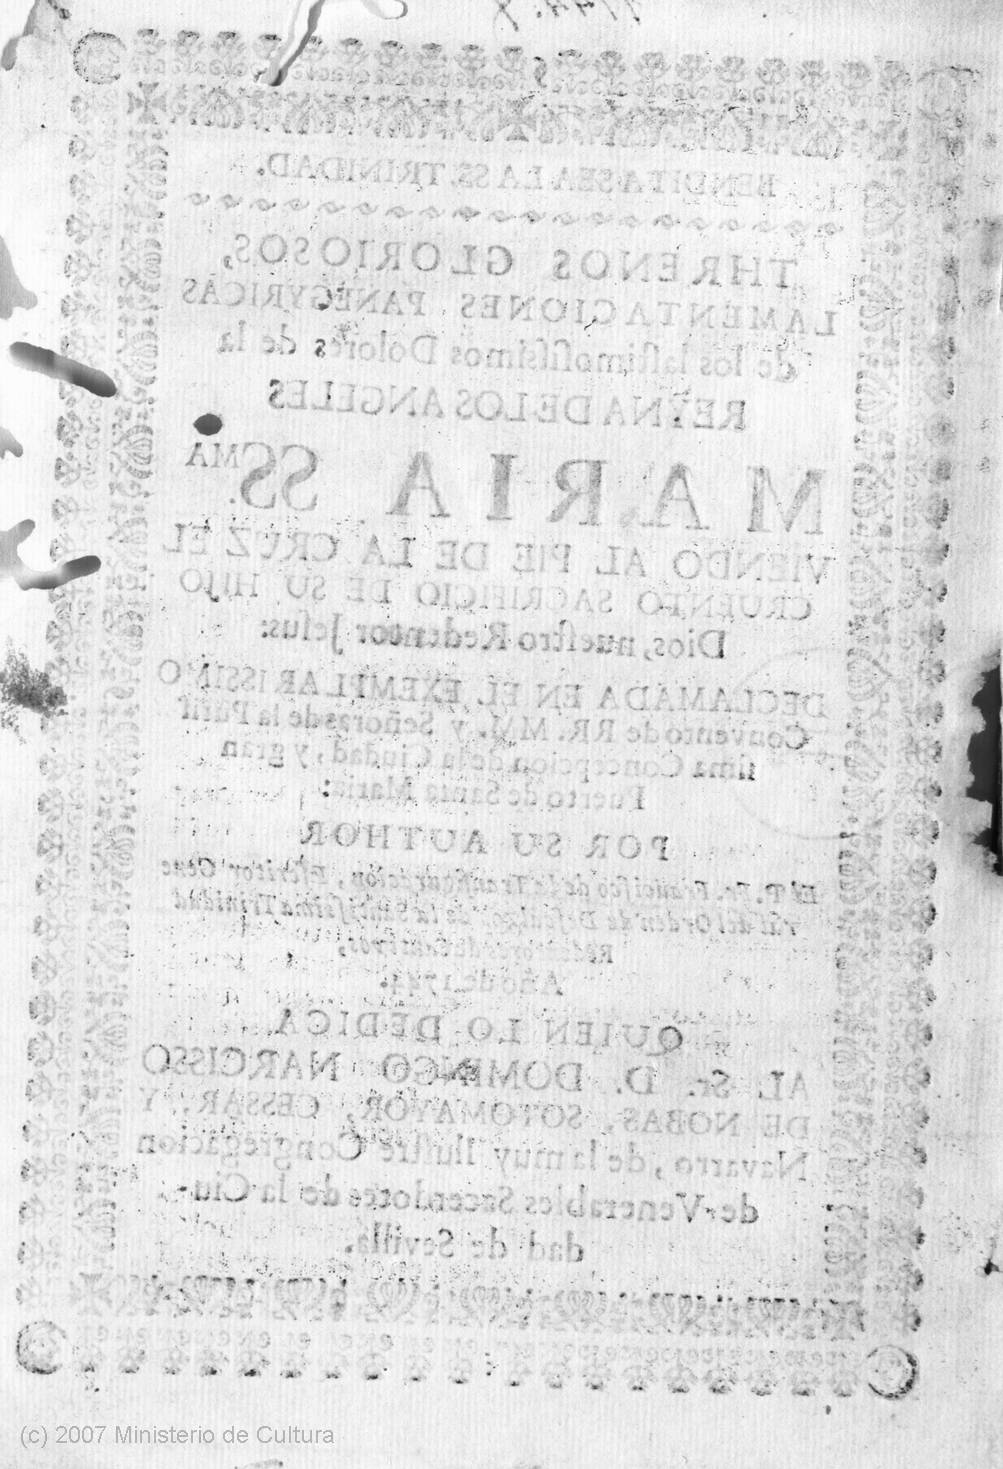 1744. X
BENDITA SEA LA SS. TRINIDAD.
THRENOS GLORIOSOS,
LAMENTACIONES PANEGYRICAS
de los laſtimoſiſsimos Dolores de la
REYNA DE LOS ANGELES
MARIA SS.MA
VIENDO AL PIE DE LA CRUZ EL
CRUENTO SACRIFICIO DE SU HIJO
Dios, nueſtro Redentor Jeſus:
DECLAMADA EN EL EXEMPLARISSIMO
Convento de RR. MM. y Señoras de la Puriſ
ſima Concepcion de la Ciudad, y gran
Puerto de Santa Maria:
POR SU AUTHOR
El P. Fr. Franciſco de la Transfiguracion, Eſcritor Gene
ral del Orden de Deſcalços de la Santiſſima Trinidad
Redentores de Cautivos,
Año de 1744.
QUIEN LO DEDICA
AL Sr. D. DOMINGO NARCISSO
DE NOBAS, SOTOMAYOR, CESSAR, Y
Navarro, de la muy Iluſtre Congregacion
de Venerables Sacerdotes de la Ciu-
dad de Sevilla.
(c) 2007 Ministerio de Cultura